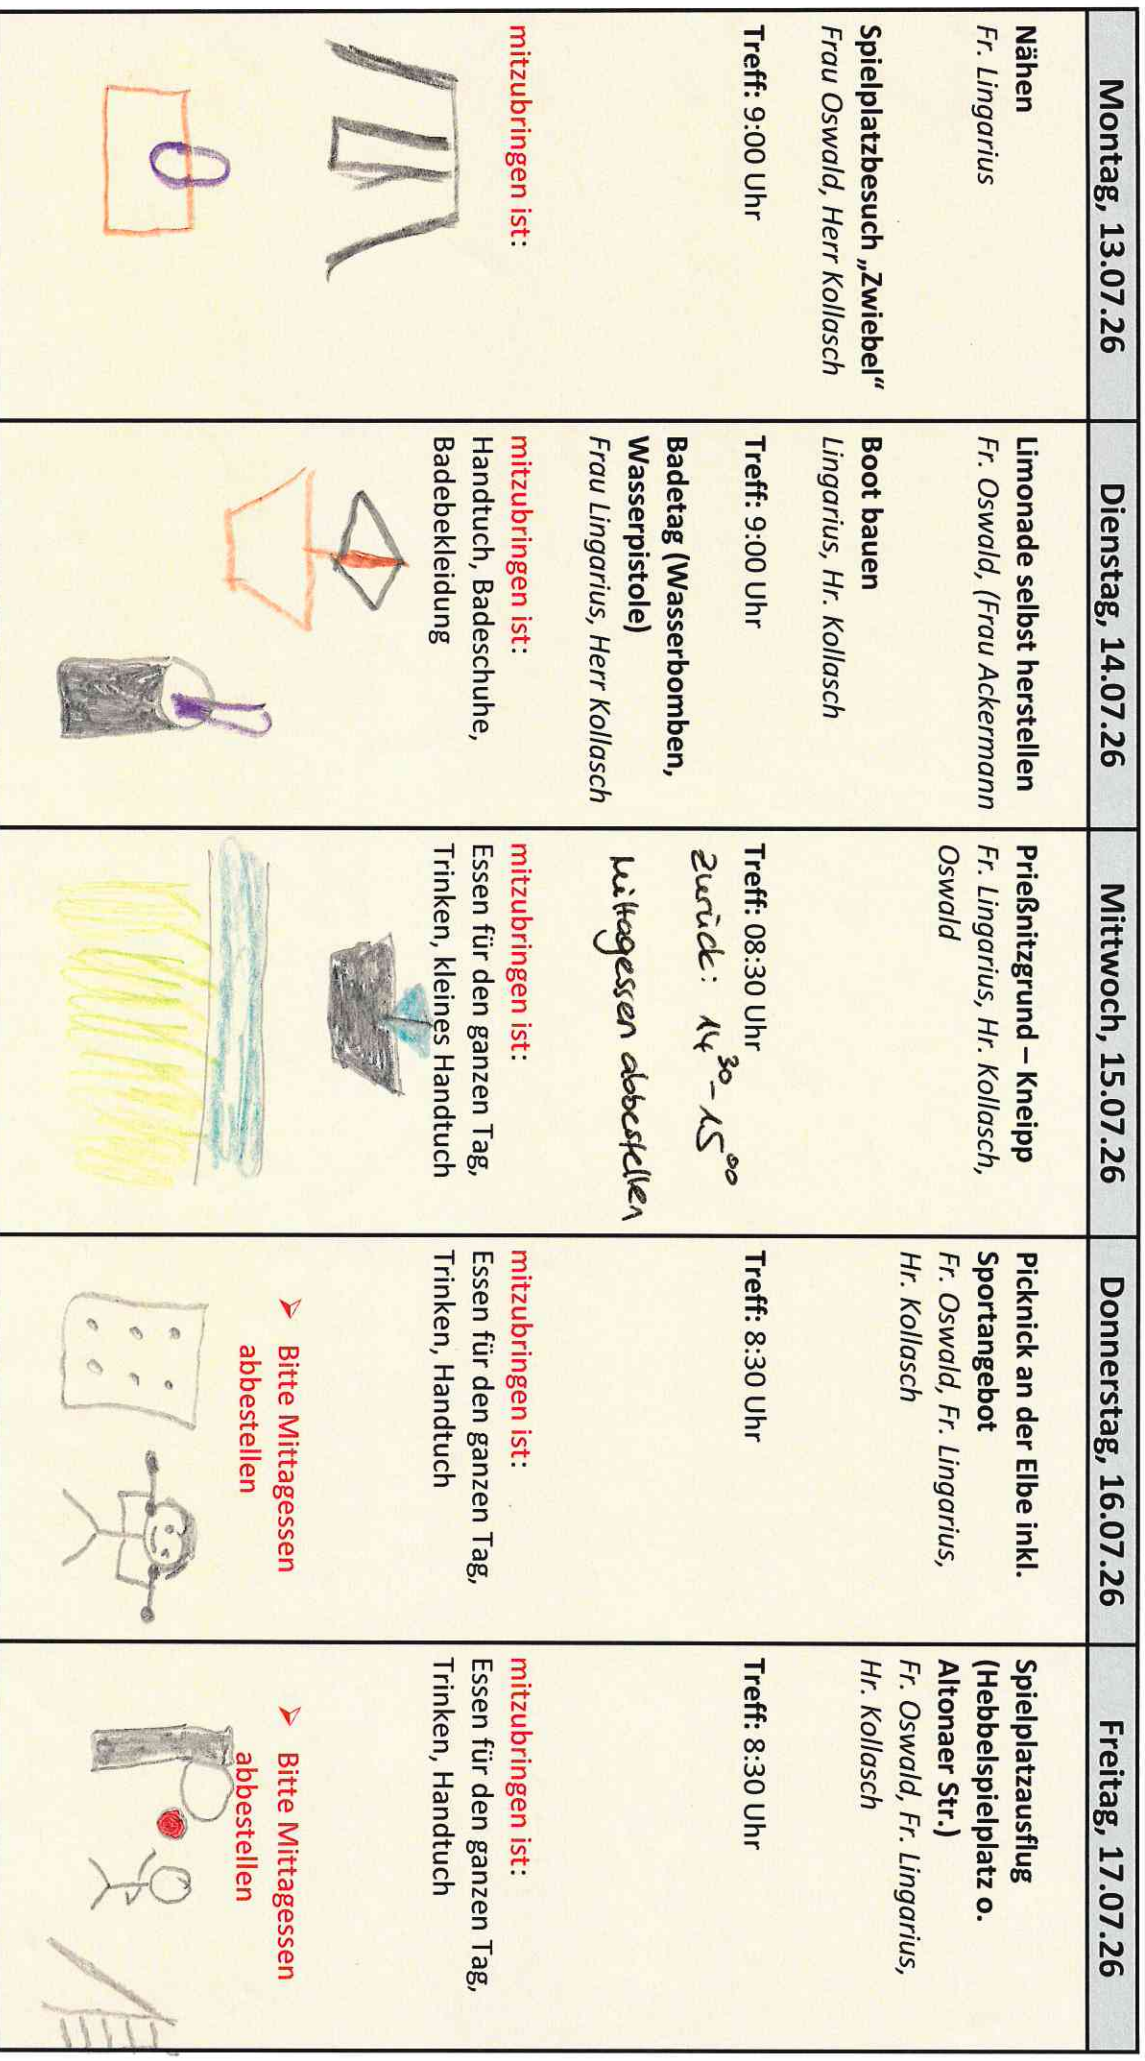 Montag, 13.07.26
Nähen
Fr. Lingarius
Spielplatzbesuch „Zwiebel“
Frau Oswald, Herr Kollasch
Treff: 9:00 Uhr
mitzubringen ist:
Dienstag, 14.07.26
Limonade selbst herstellen
Fr. Oswald, (Frau Ackermann
Boot bauen
Lingarius, Hr. Kollasch
Treff: 9:00 Uhr
Badetag (Wasserbomben,
Wasserpistole)
Frau Lingarius, Herr Kollasch
mitzubringen ist:
Handtuch, Badeschuhe,
Badebekleidung
Mittwoch, 15.07.26
Prießnitzgrund – Kneipp
Fr. Lingarius, Hr. Kollasch,
Oswald
Treff: 08:30 Uhr
Zurück: 14³⁰ – 15⁰⁰
Mittagessen abbestellen
mitzubringen ist:
Essen für den ganzen Tag,
Trinken, kleines Handtuch
Donnerstag, 16.07.26
Picknick an der Elbe inkl.
Sportangebot
Fr. Oswald, Fr. Lingarius,
Hr. Kollasch
Treff: 8:30 Uhr
mitzubringen ist:
Essen für den ganzen Tag,
Trinken, Handtuch
Bitte Mittagessen
abbestellen
Freitag, 17.07.26
Spielplatzausflug
(Hebbelspielplatz o.
Altonaer Str.)
Fr. Oswald, Fr. Lingarius,
Hr. Kollasch
Treff: 8:30 Uhr
mitzubringen ist:
Essen für den ganzen Tag,
Trinken, Handtuch
Bitte Mittagessen
abbestellen